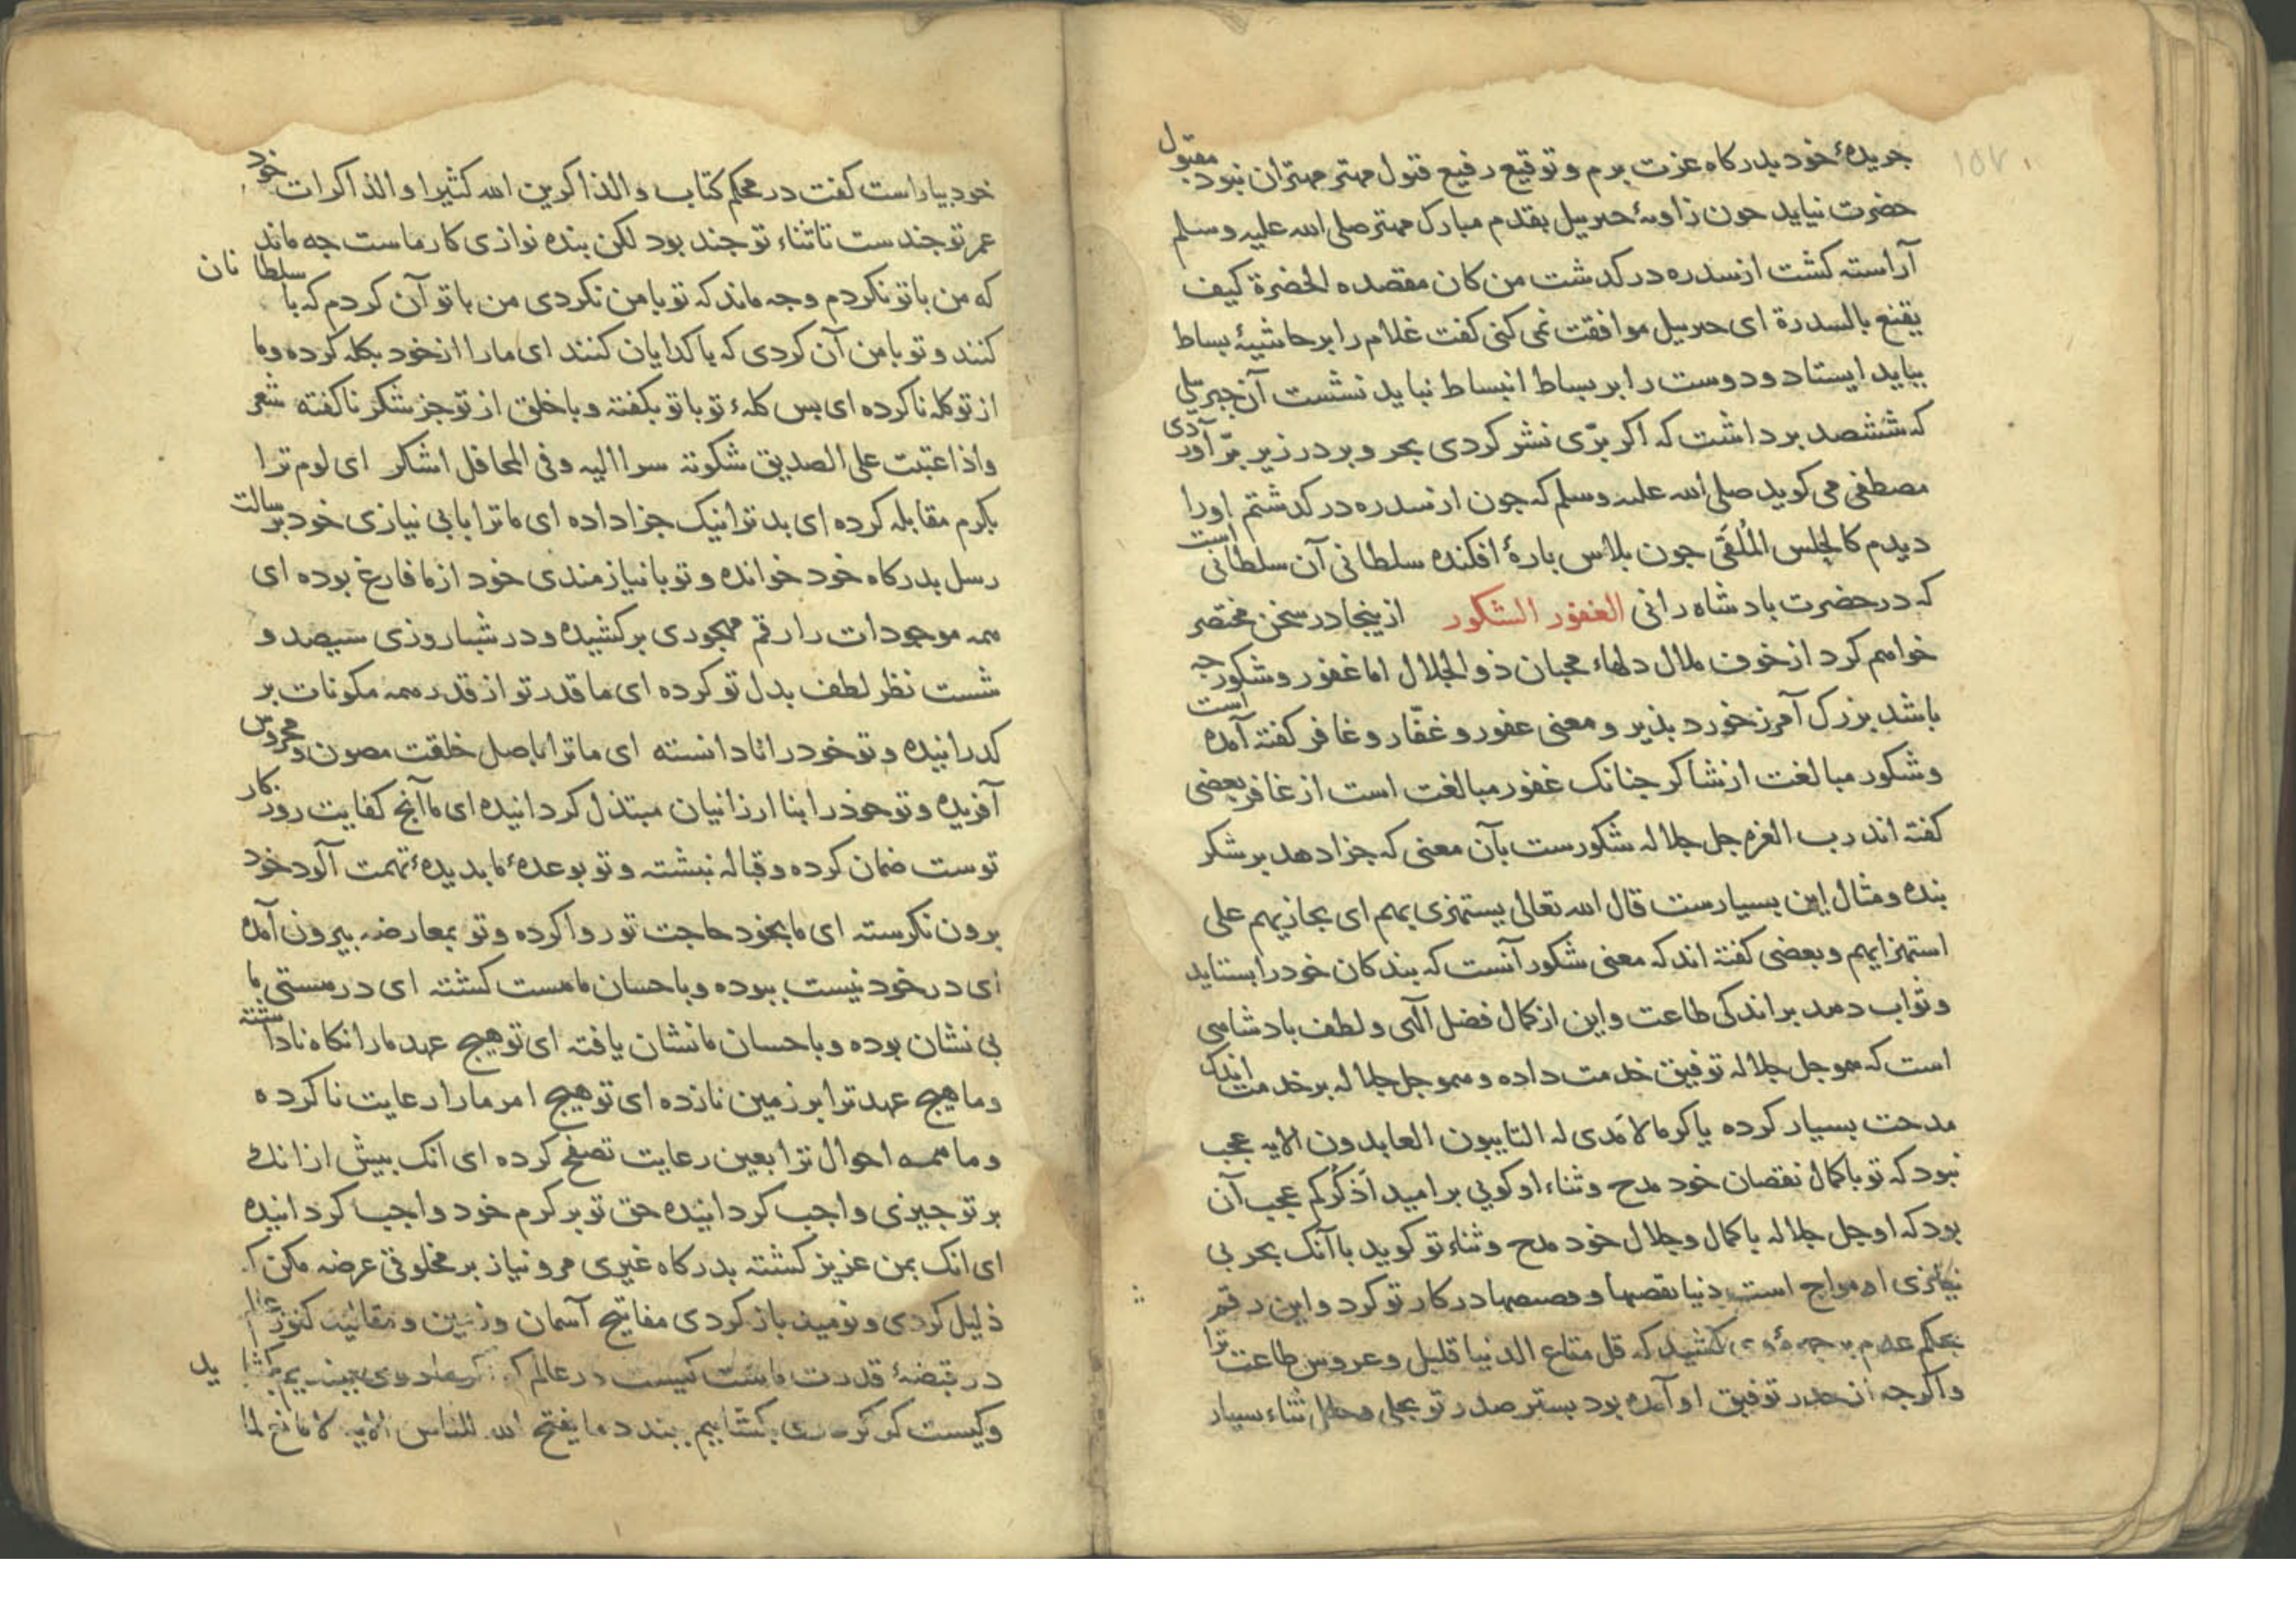 ۱۵۷
جریدهٔ خود بدرکاه عزت برم و توقیع رفیع قبول مهتر مهتران نبود مقبول
حضرت نیاید جون زاویهٔ جبریل بقدم مبارک مهتر صلی الله علیه وسلم
آراسته کشت از سدره درکدشت من کان مقصده الحضرة کیف
یقنع بالسدرة ای جبریل موافقت نمی کنی کفت غلام را بر حاشیهٔ بساط
بباید ایستاد و دوست را بر بساط انبساط نباید نشست آن جبریلی
که ششصد بر داشت که اکر برّی نشر کردی بحر و بر در زیر برّ آوردی
مصطفی می کوید صلی الله علیه وسلم که جون از سدره درکدشتم اورا
دیدم کالحلس المُلقَی جون بلاس بارهٔ افکنده سلطانی آن سلطانی است
که در حضرت بادشاه رانی الغفور الشکور ازینجا در سخن مختصر
خواهم کرد از خوف ملال دلهاء محبان ذو الجلال اما غفور و شکور جه
باشد بزرک آمرز خورد بذیر و معنی غفور و غفّار و غافر کفته آمده است
و شکور مبالغت از شاکر جنانک غفور مبالغت است از غافر بعضی
کفته اند رب العزه جل جلاله شکورست بآن معنی که جزا دهد بر شکر
بنده و مثال این بسیارست قال الله تعالی یستهزی بهم ای یجازیهم علی
استهزایهم و بعضی کفته اند که معنی شکور آنست که بندکان خود را بستاید
و ثواب دهد بر اندکی طاعت و این از کمال فضل الهی و لطف بادشاهی
است که هموجل جلاله توفیق خدمت داده و هموجل جلاله بر خدمت اندک
مدحت بسیار کرده یا کرما لا مَدی له التایبون العابدون الایه عجب
نبود که تو با کمال نقصان خود مدح و ثناء او کویی بر امید اَذکُرکم عجب آن
بود که او جل جلاله با کمال و جلال خود مدح و ثناء تو کوید با آنک بحر بی
نیازی او مواج است دنیا بقصها و قصصها در کار تو کرد و این رقم
بحکم عدم بر جهرهٔ وی کشید که قل متاع الدنیا قلیل و عروس طاعت ترا
و اکرجه از خدر توفیق او آمده بود بستر صدر تو بحلی و حلل ثناء بسیار
خود بیاراست کفت در محکم کتاب والذاکرین الله کثیرا والذاکرات خود
عمر تو جندست تا ثناء تو جند بود لکن بنده نوازی کار ماست جه ماند
که من با تو نکردم و جه ماند که تو با من نکردی من با تو آن کردم که با سلطانان
کنند و تو با من آن کردی که با کدایان کنند ای ما را از خود بکله کرده و ما
از تو کله ناکرده ای بس کلهٔ تو با تو بکفته و با خلق از تو جز شکر ناکفته شعر
واذا عتبت علی الصدیق شکوته سرا الیه وفی المحافل اشکر ای لوم ترا
بکرم مقابله کرده ای بد ترا نیک جزا داده ای ما ترا با بی نیازی خود برسالت
رسل بدرکاه خود خوانده و تو با نیازمندی خود از ما فارغ بوده ای
همه موجودات را رقم مهجوری برکشیده و در شباروزی سیصد و
شست نظر لطف بدل تو کرده ای ما قدر تو از قدر همه مکونات بر
کدرانیده و تو خود را نادانسته ای ما ترا باصل خلقت مصون و محروس
آفریده و تو خود را بنا ارزانیان مبتذل کردانیده ای ما آنج کفایت روزکار
توست ضمان کرده و قباله نبشته و تو بوعدهٔ ما بدیدهٔ تهمت آلود خود
برون نکرسته ای ما بخود حاجت تو روا کرده و تو بمعارضه بیرون آمده
ای در خود نیست ببوده و باحسان ما مست کشته ای در مستی ما
بی نشان بوده و باحسان ما نشان یافته ای تو هیج عهد ما را نکاه ناداشته
و ما هیج عهد ترا بر زمین نازده ای تو هیج امر ما را رعایت ناکرده
و ما همه احوال ترا بعین رعایت تصفح کرده ای انک بیش از انک
بر تو جیزی واجب کردانیده حق تو بر کرم خود واجب کردانیده
ای انک بمن عزیز کشته بدرکاه غیری مرو نیاز بر مخلوقی عرضه مکن که
ذلیل کردی و نومید باز کردی مفاتیح آسمان و زمین و مقالید کنوز
در قبضهٔ قدرت ماست کیست در عالم که ببندیم بکشاید
و کیست کر بکشاییم ببندد ما یفتح الله للناس الایه لا مانع لما